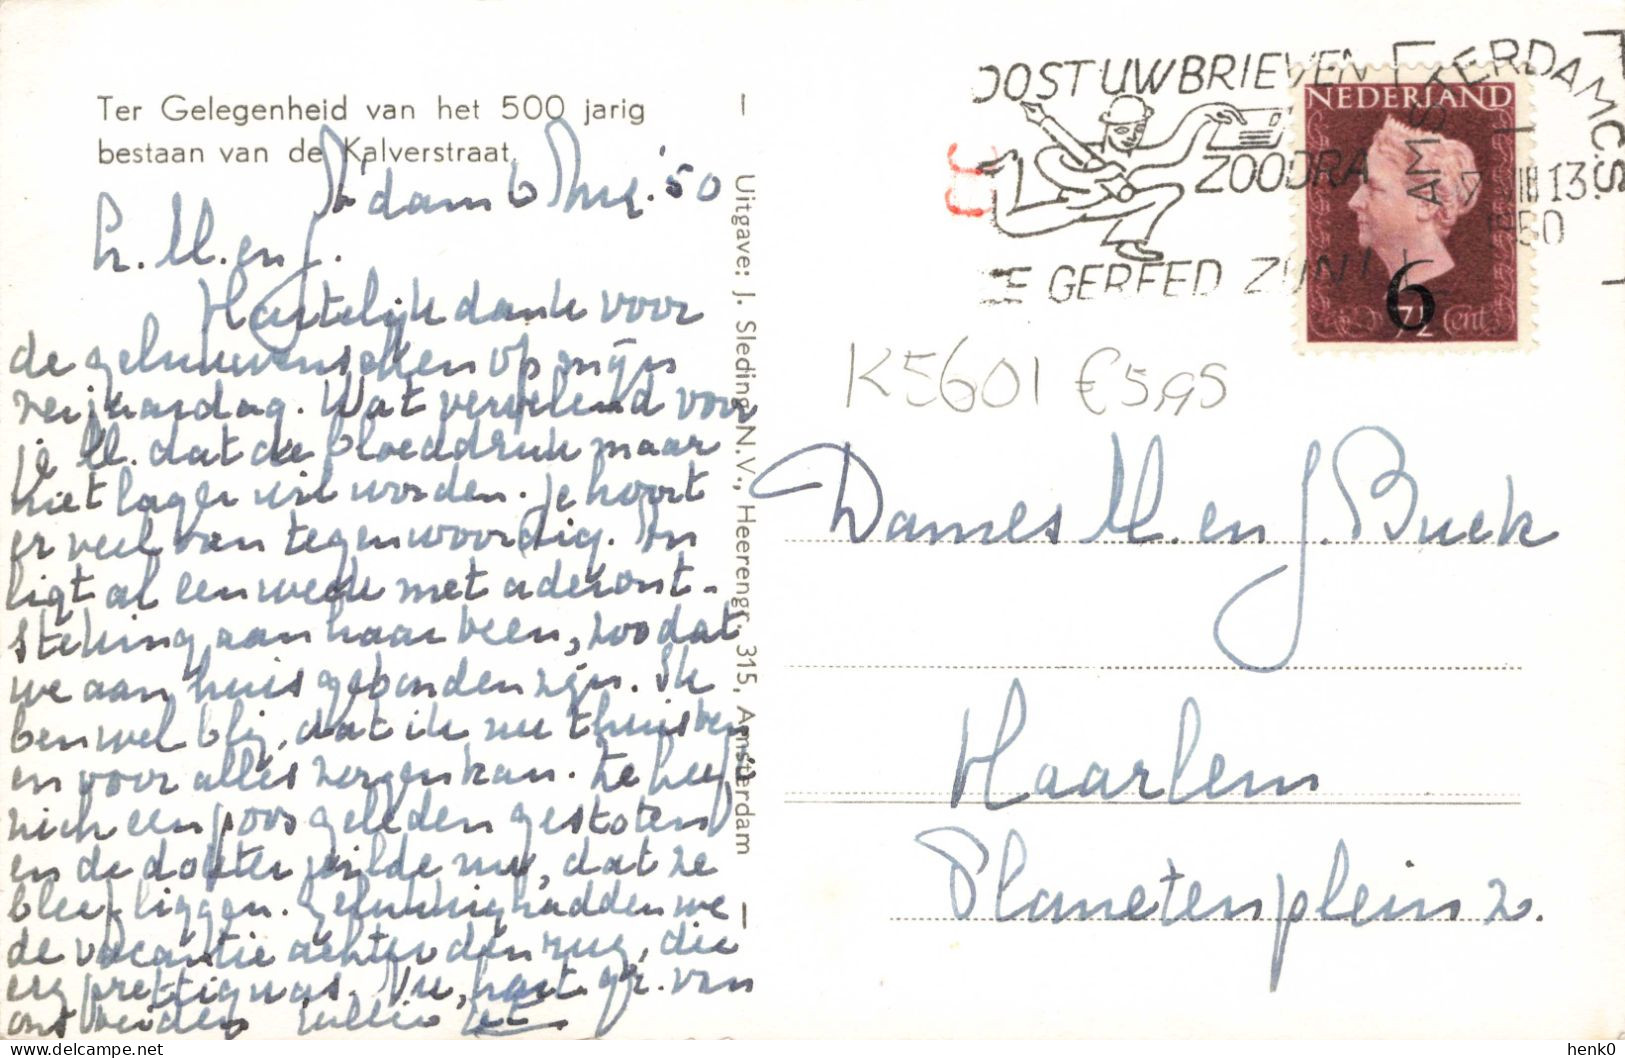 Ter Gelegenheid van het 500 jarig
bestaan van de Kalverstraat.
A'dam 6 Aug. '50
L. M. en J.
Hartelijk dank voor
de gelukwenschen op mijn
verjaardag. Wat vervelend voor
je M. dat de bloeddruk maar
niet lager wil worden. Je hoort
er veel van tegenwoordig. An
ligt al een week met aderont-
steking aan haar been, zoodat
we aan huis gebonden zijn. Ik
ben wel blij, dat ik nu thuis ben
en voor alles zorgen kan. Ze heeft
zich een poos geleden gestoten
en de dokter wilde nu, dat ze
bleef liggen. Gelukkig hadden we
de vacantie achter den rug, die
erg prettig was. Nu, hart. gr. van
ons beiden
Uitgave: J. Sleding N.V., Heerengr. 315, Amsterdam
POST UW BRIEVEN
ZOODRA
ZE GEREED ZIJN!
AMSTERDAM C.S.
VIII 13
1950
NEDERLAND
6
7½ Cent
K5601 €5,95
Dames M. en J. Buek
Haarlem
Planetenplein 2.
henk0